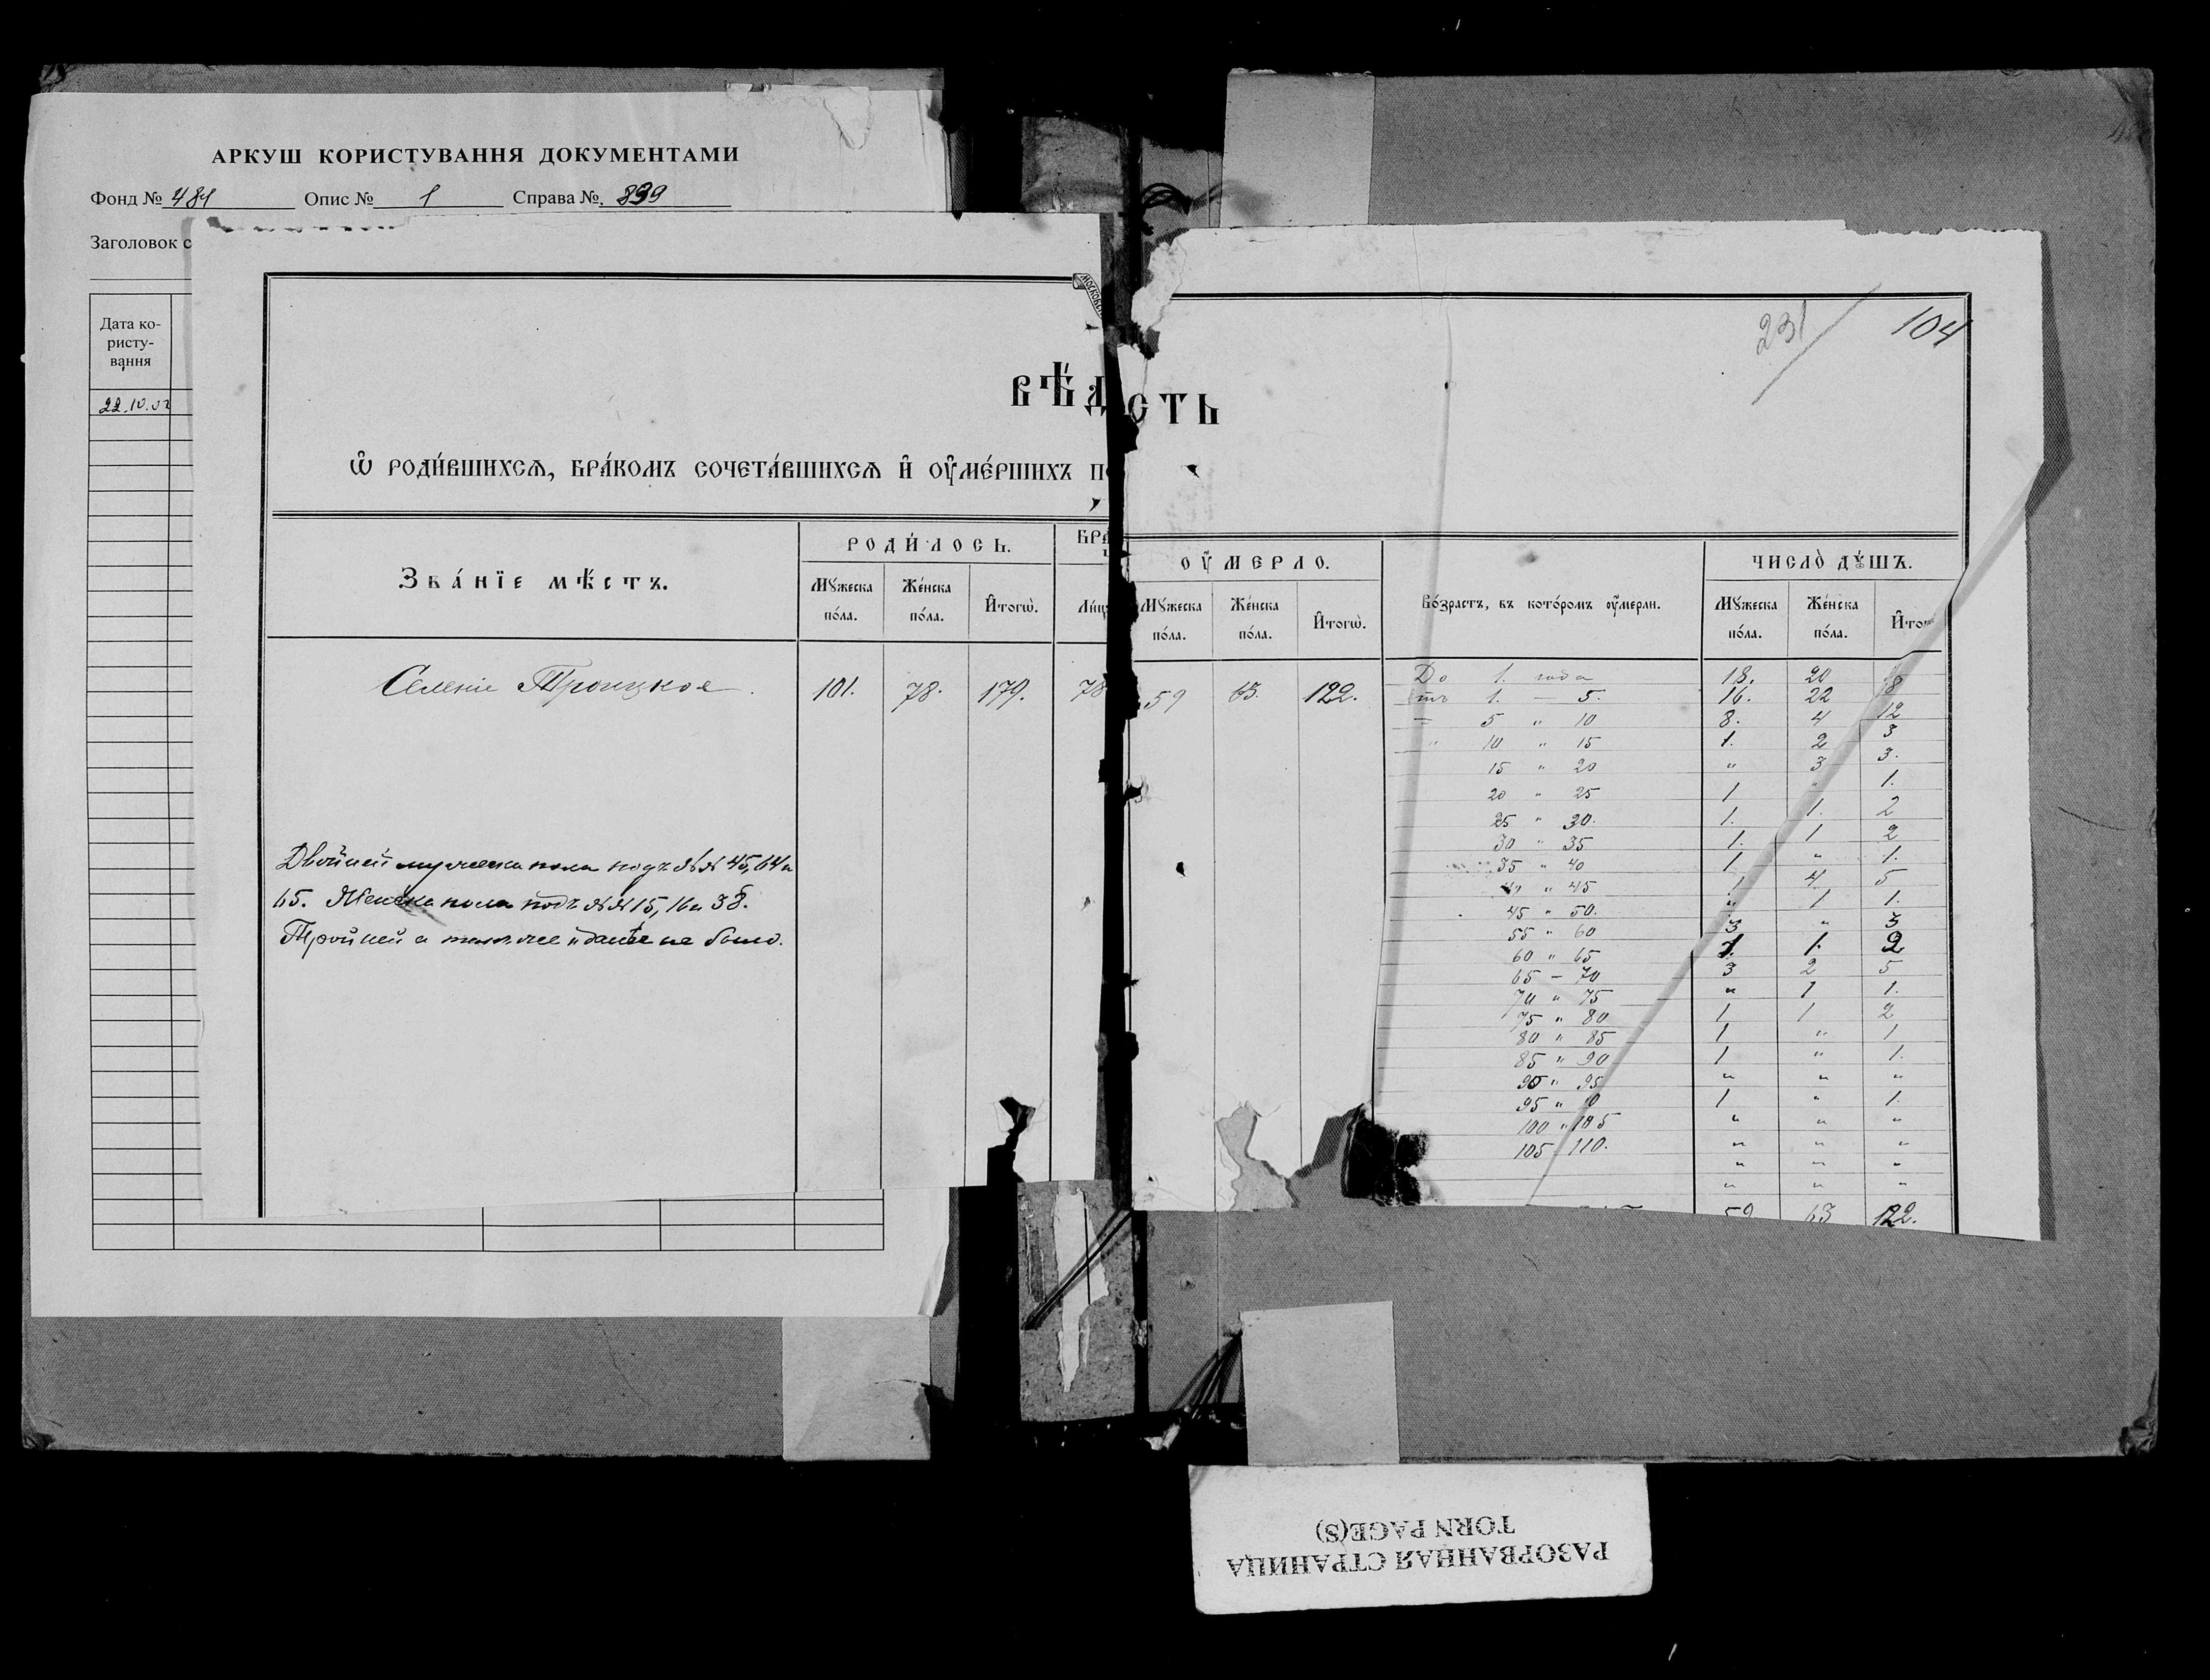 АРКУШ КОРИСТУВАННЯ ДОКУМЕНТАМИ
Фонд № 481 Опис № 1 Справа №. 839
Заголовок с
Дата ко-
ристу-
вання
22.10.02
МОСКОВС
231
104
ВѢ́Д СТЬ
Ѿ РОДИ́ВШИХСѦ, БРА́КОМЪ СОЧЕТА́ВШИХСѦ И҆ ОУ҆МЕ́РШИХЪ ПО
Зва́нїе мѣ́стъ.
РОДИ́ЛОСЬ.
Мꙋ́жеска по́ла.
Же́нска по́ла.
И҆тогѡ̀.
БРА
Ли́ц
ОУ҆МЕРЛО.
Мꙋ́жеска по́ла.
Же́нска по́ла.
И҆тогѡ̀.
Во́зрастъ, въ кото́ромъ оу҆́мерли.
ЧИСЛО̀ ДꙊ́ШЪ.
Мꙋ́жеска по́ла.
Же́нска по́ла.
И҆то
Селенiе Троицкое. 101. 78. 179. 78
59 63. 122.
До 1. года 18. 20 8
отъ 1. — 5. 16. 22
= 5 " 10 8. 4 12
" 10 " 15 1. 2 3
15 " 20 " 3 3.
20 " 25 1 " 1.
25 " 30. 1. 1. 2
30 " 35 1. 1 2
35 " 40 1 " 1.
40 " 45 1 4 5
45 " 50. " 1 1.
55 " 60 3 " 3
60 " 65 1. 1. 2
65 — 70 3 2 5
70 " 75 " 1 1.
75 " 80 1 1 2
80 " 85 1 " 1
85 " 90 1 " 1.
90 " 95 " " "
95 " 0 1 " 1.
100 " 105 " " "
105 110. " " "
" " "
" " "
59 63 122.
Двойней мужеска пола подъ №№ 45, 64 и
65. Женска пола подъ №№ 15, 16 и 38.
Тройней а также и далѣе не было.
РАЗОРВАННАЯ СТРАНИЦА
TORN PAGE(S)